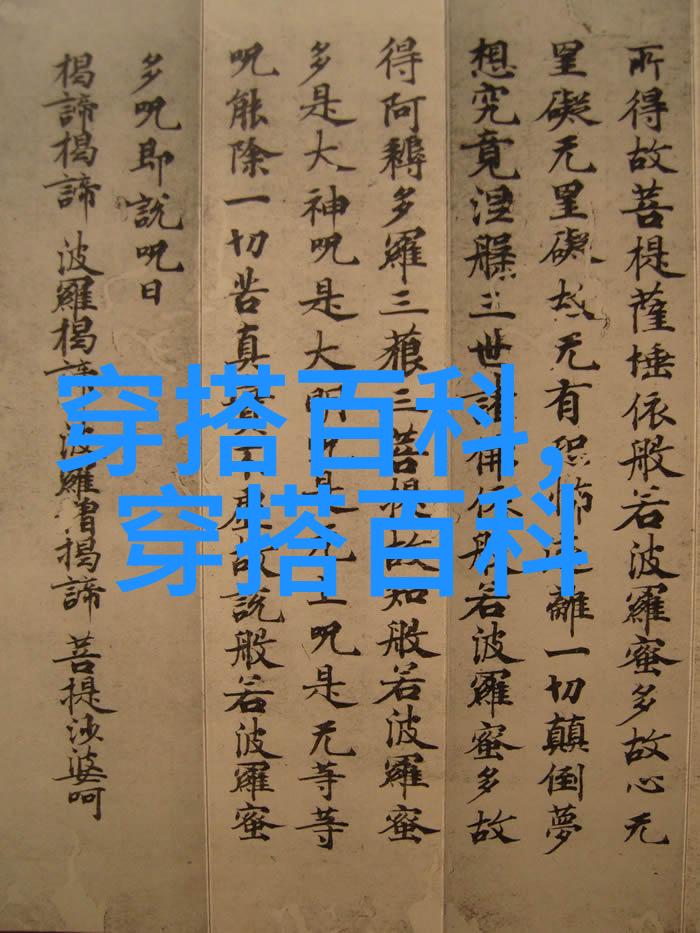 所得故菩提薩埵依般若波羅蜜多故心无
罣礙无罣礙故无有恐怖遠離一切顛倒夢
想究竟涅槃三世諸佛依般若波羅蜜多故
得阿耨多羅三藐三菩提故知般若波羅蜜
多是大神呪是大明呪是无上呪是无等等
呪能除一切苦真實不虛故說般若波羅蜜
多呪即說呪曰
揭諦揭諦 波羅揭諦 波羅僧揭諦 菩提沙婆呵
穿搭百科,
穿搭百科